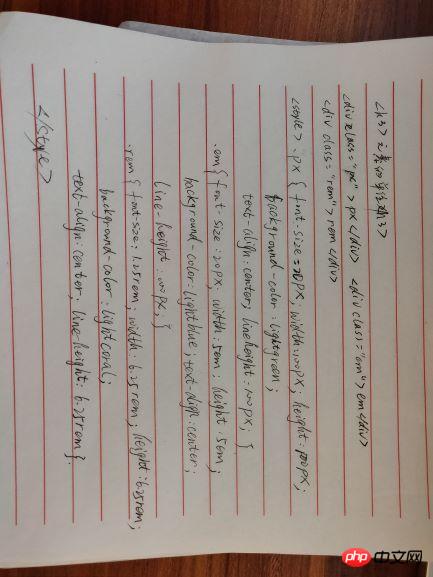 <h3>元素的单位<h3>
<div class="px">px</div> <div class="em">em</div>
<div class="rem">rem</div>
<style> .px { font-size:20px; width:100px; height:100px;
background-color:lightgreen;
text-align:center; lineheight:100px; }
.em{ font-size:20px; width:5em; height:5em;
background-color:lightblue; text-align:center;
line-height:100px; }
.rem{ font-size:1.25rem; width:6.25rem; height:6.25rem;
background-color:lightcoral;
text-align:center; line-height:6.25rem}.
</style>
php 中文网